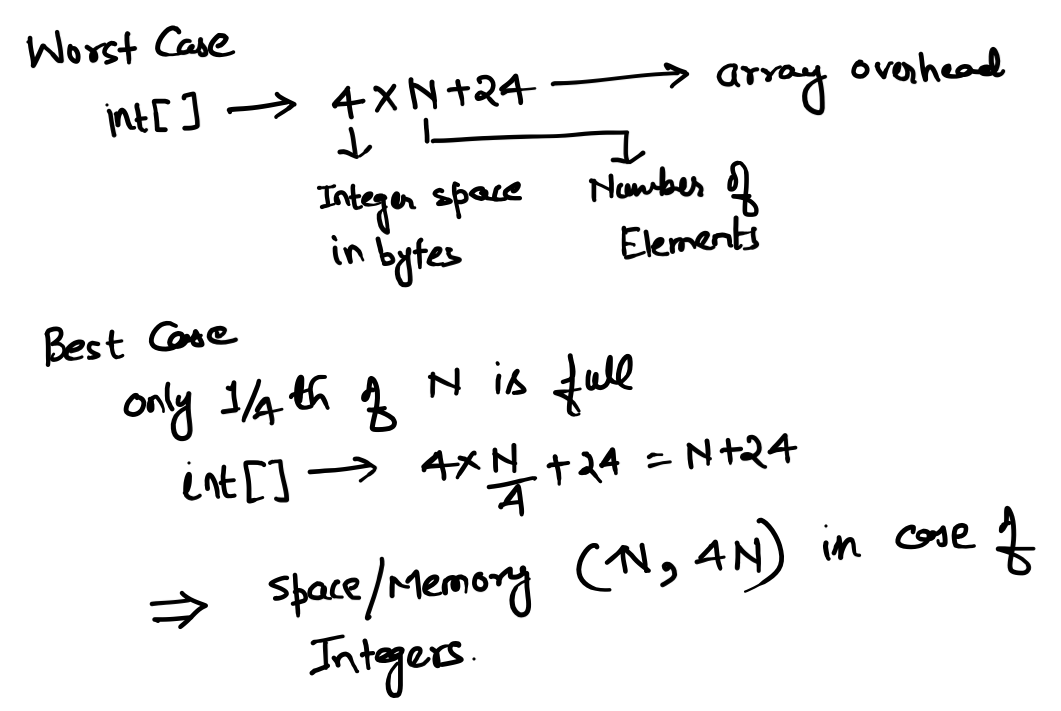 Worst Case
int[] → 4 × N + 24 → array overhead
Integer space Number of
in bytes Elements
Best Case
only 1/4 th of N is full
int[] → 4 × N/4 + 24 = N + 24
⇒ space/Memory (N, 4N) in case of
Integers.